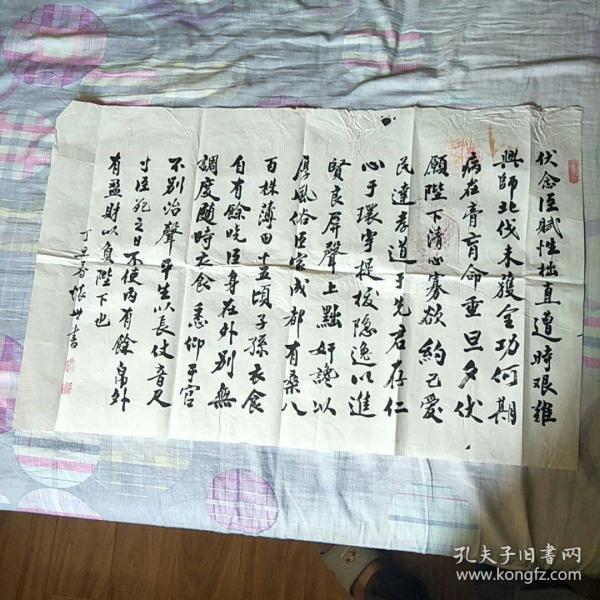 伏念臣賦性拙直遭時艰難
興師北伐未獲全功何期
病在膏肓命垂旦夕伏
願陛下清心寡欲約己愛
民達孝道于先君存仁
心于環宇提拔隐逸以進
賢良屏聲上黜奸讒以
厚風俗臣家成都有桑八
百株薄田十五頃子孫衣食
自有餘饶臣身在外别無
調度隨時衣食悉仰于官
不别治聲平生以長仗音尺
寸臣死之日不使内有餘帛外
有盈財以負陛下也
書
孔夫子旧書网
www.kongfz.com